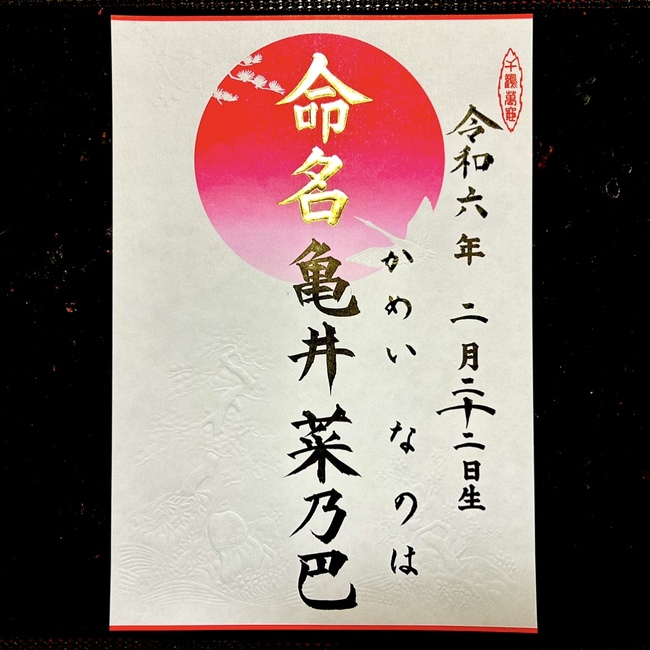 千鶴萬亀
令和六年 二月二十二日生
かめい なのは
命名 亀井菜乃巴